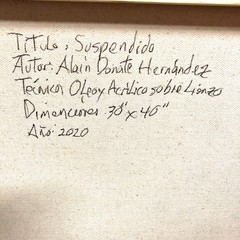 Titulo: Suspendido
Autor: Alain Donate Hernández
Técnica: Oleo y Acrílico sobre Lienzo
Dimenciones 30" x 40"
Año: 2020